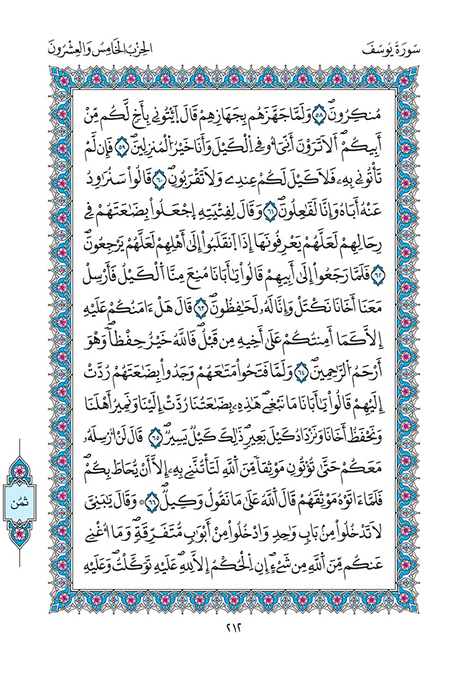 سُورَةُ يُوسُفَ
الحِزْبُ الخَامِسُ وَالعِشْرُونَ
مُنكِرُونَۖ ٥٨ وَلَمَّا جَهَّزَهُم بِجَهَازِهِمْ قَالَ اَ۪يتُونِي بِأَخٖ لَّكُم مِّنَ
اَبِيكُمُۥٓ أَلَا تَرَوْنَ أَنِّيَ أُوفِي اِ۬لْكَيْلَ وَأَنَا خَيْرُ اُ۬لْمُنزِلِينَۖ ٥٩ فَإِن لَّمْ
تَأْتُونِي بِهِۦ فَلَا كَيْلَ لَكُمْ عِندِي وَلَا تَقْرَبُونِۖ ٦٠ قَالُواْ سَنُرَٰوِدُ
عَنْهُ أَبَاهُ وَإِنَّا لَفَٰعِلُونَۖ ٦١ وَقَالَ لِفِتْيَتِهِ اِ۪جْعَلُواْ بِضَٰعَتَهُمْ فِي
رِحَالِهِمْ لَعَلَّهُمْ يَعْرِفُونَهَا إِذَا اَ۪نقَلَبُواْ إِلَىٰٓ أَهْلِهِمْ لَعَلَّهُمْ يَرْجِعُونَۖ
٦٢ فَلَمَّا رَجَعُواْ إِلَىٰٓ أَبِيهِمْ قَالُواْ يَٰٓأَبَانَا مُنِعَ مِنَّا اَ۬لْكَيْلُ فَأَرْسِلْ
مَعَنَآ أَخَانَا نَكْتَلْ وَإِنَّا لَهُۥ لَحَٰفِظُونَۖ ٦٣ قَالَ هَلَ اٰمَنُكُمْ عَلَيْهِ
إِلَّا كَمَآ أَمِنتُكُمْ عَلَىٰٓ أَخِيهِ مِن قَبْلُۖ فَاللَّهُ خَيْرٌ حِفْظاٗۖ وَهُوَ
أَرْحَمُ اُ۬لرَّٰحِمِينَۖ ٦٤ وَلَمَّا فَتَحُواْ مَتَٰعَهُمْ وَجَدُواْ بِضَٰعَتَهُمْ رُدَّتِ
اِلَيْهِمْ قَالُواْ يَٰٓأَبَانَا مَا نَبْغِيۖ هَٰذِهِۦ بِضَٰعَتُنَا رُدَّتِ اِلَيْنَا وَنَمِيرُ أَهْلَنَا
وَنَحْفَظُ أَخَانَا وَنَزْدَادُ كَيْلَ بَعِيرٖۖ ذَٰلِكَ كَيْلٞ يَسِيرٞۖ ٦٥ قَالَ لَنُ ا۟رْسِلَهُۥ
مَعَكُمْ حَتَّىٰ تُوتُونِ مَوْثِقاٗ مِّنَ اَ۬للَّهِ لَتَأْتُنَّنِي بِهِۦٓ إِلَّآ أَنْ يُّحَاطَ بِكُمْۖ
فَلَمَّآ ءَاتَوْهُ مَوْثِقَهُمْ قَالَ اَ۬للَّهُ عَلَىٰ مَا نَقُولُ وَكِيلٞۖ ٦٦ ۞ وَقَالَ يَٰبَنِيَّ
لَا تَدْخُلُواْ مِنۢ بَابٖ وَٰحِدٖ وَادْخُلُواْ مِنَ اَبْوَٰبٖ مُّتَفَرِّقَةٖۖ وَمَآ أُغْنِي
عَنكُم مِّنَ اَ۬للَّهِ مِن شَےْءٍۖ اِنِ اِ۬لْحُكْمُ إِلَّا لِلهِۖ عَلَيْهِ تَوَكَّلْتُۖ وَعَلَيْهِ
ثُمُن
٢١٢